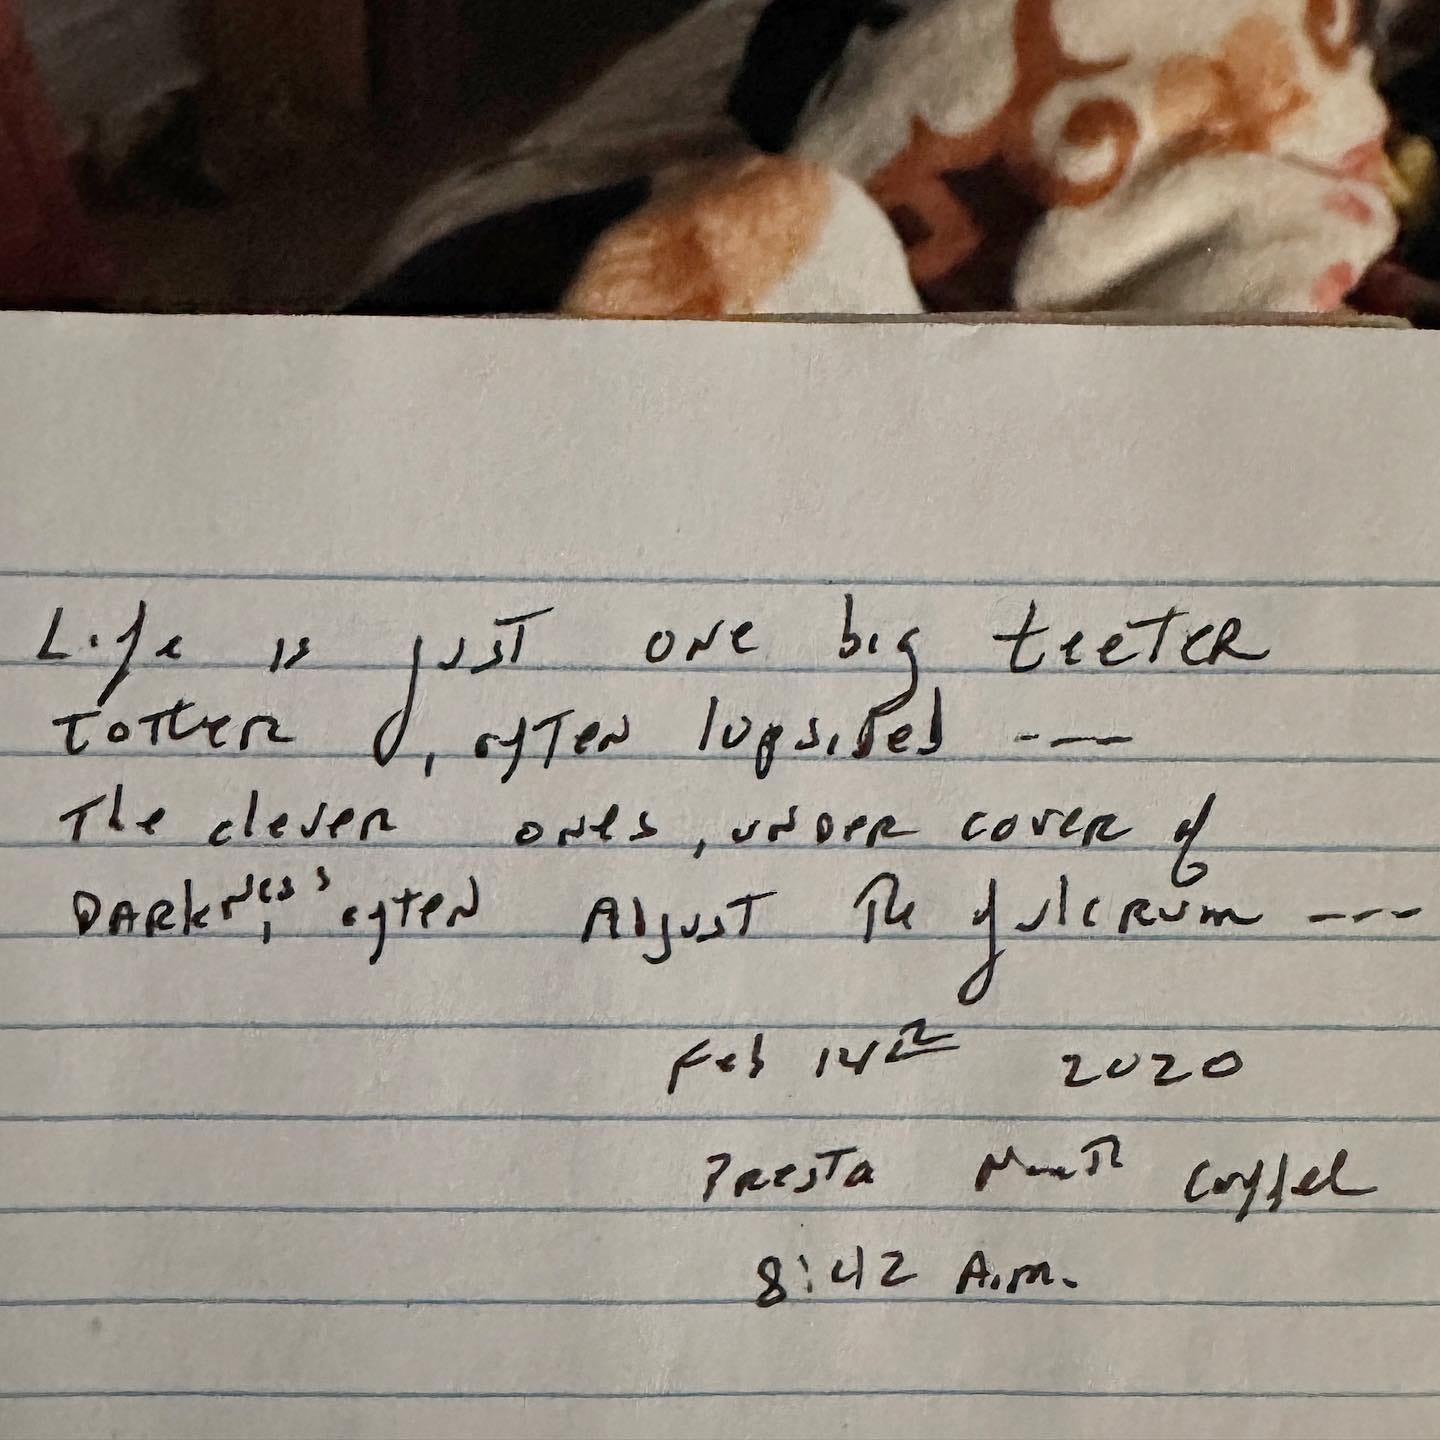 Life is just one big teeter
totter, often lopsided ---
The clever ones, under cover of
Darkness, often Adjust The fulcrum ---
Feb 14th 2020
Presta North Coffee
8:42 A.m.